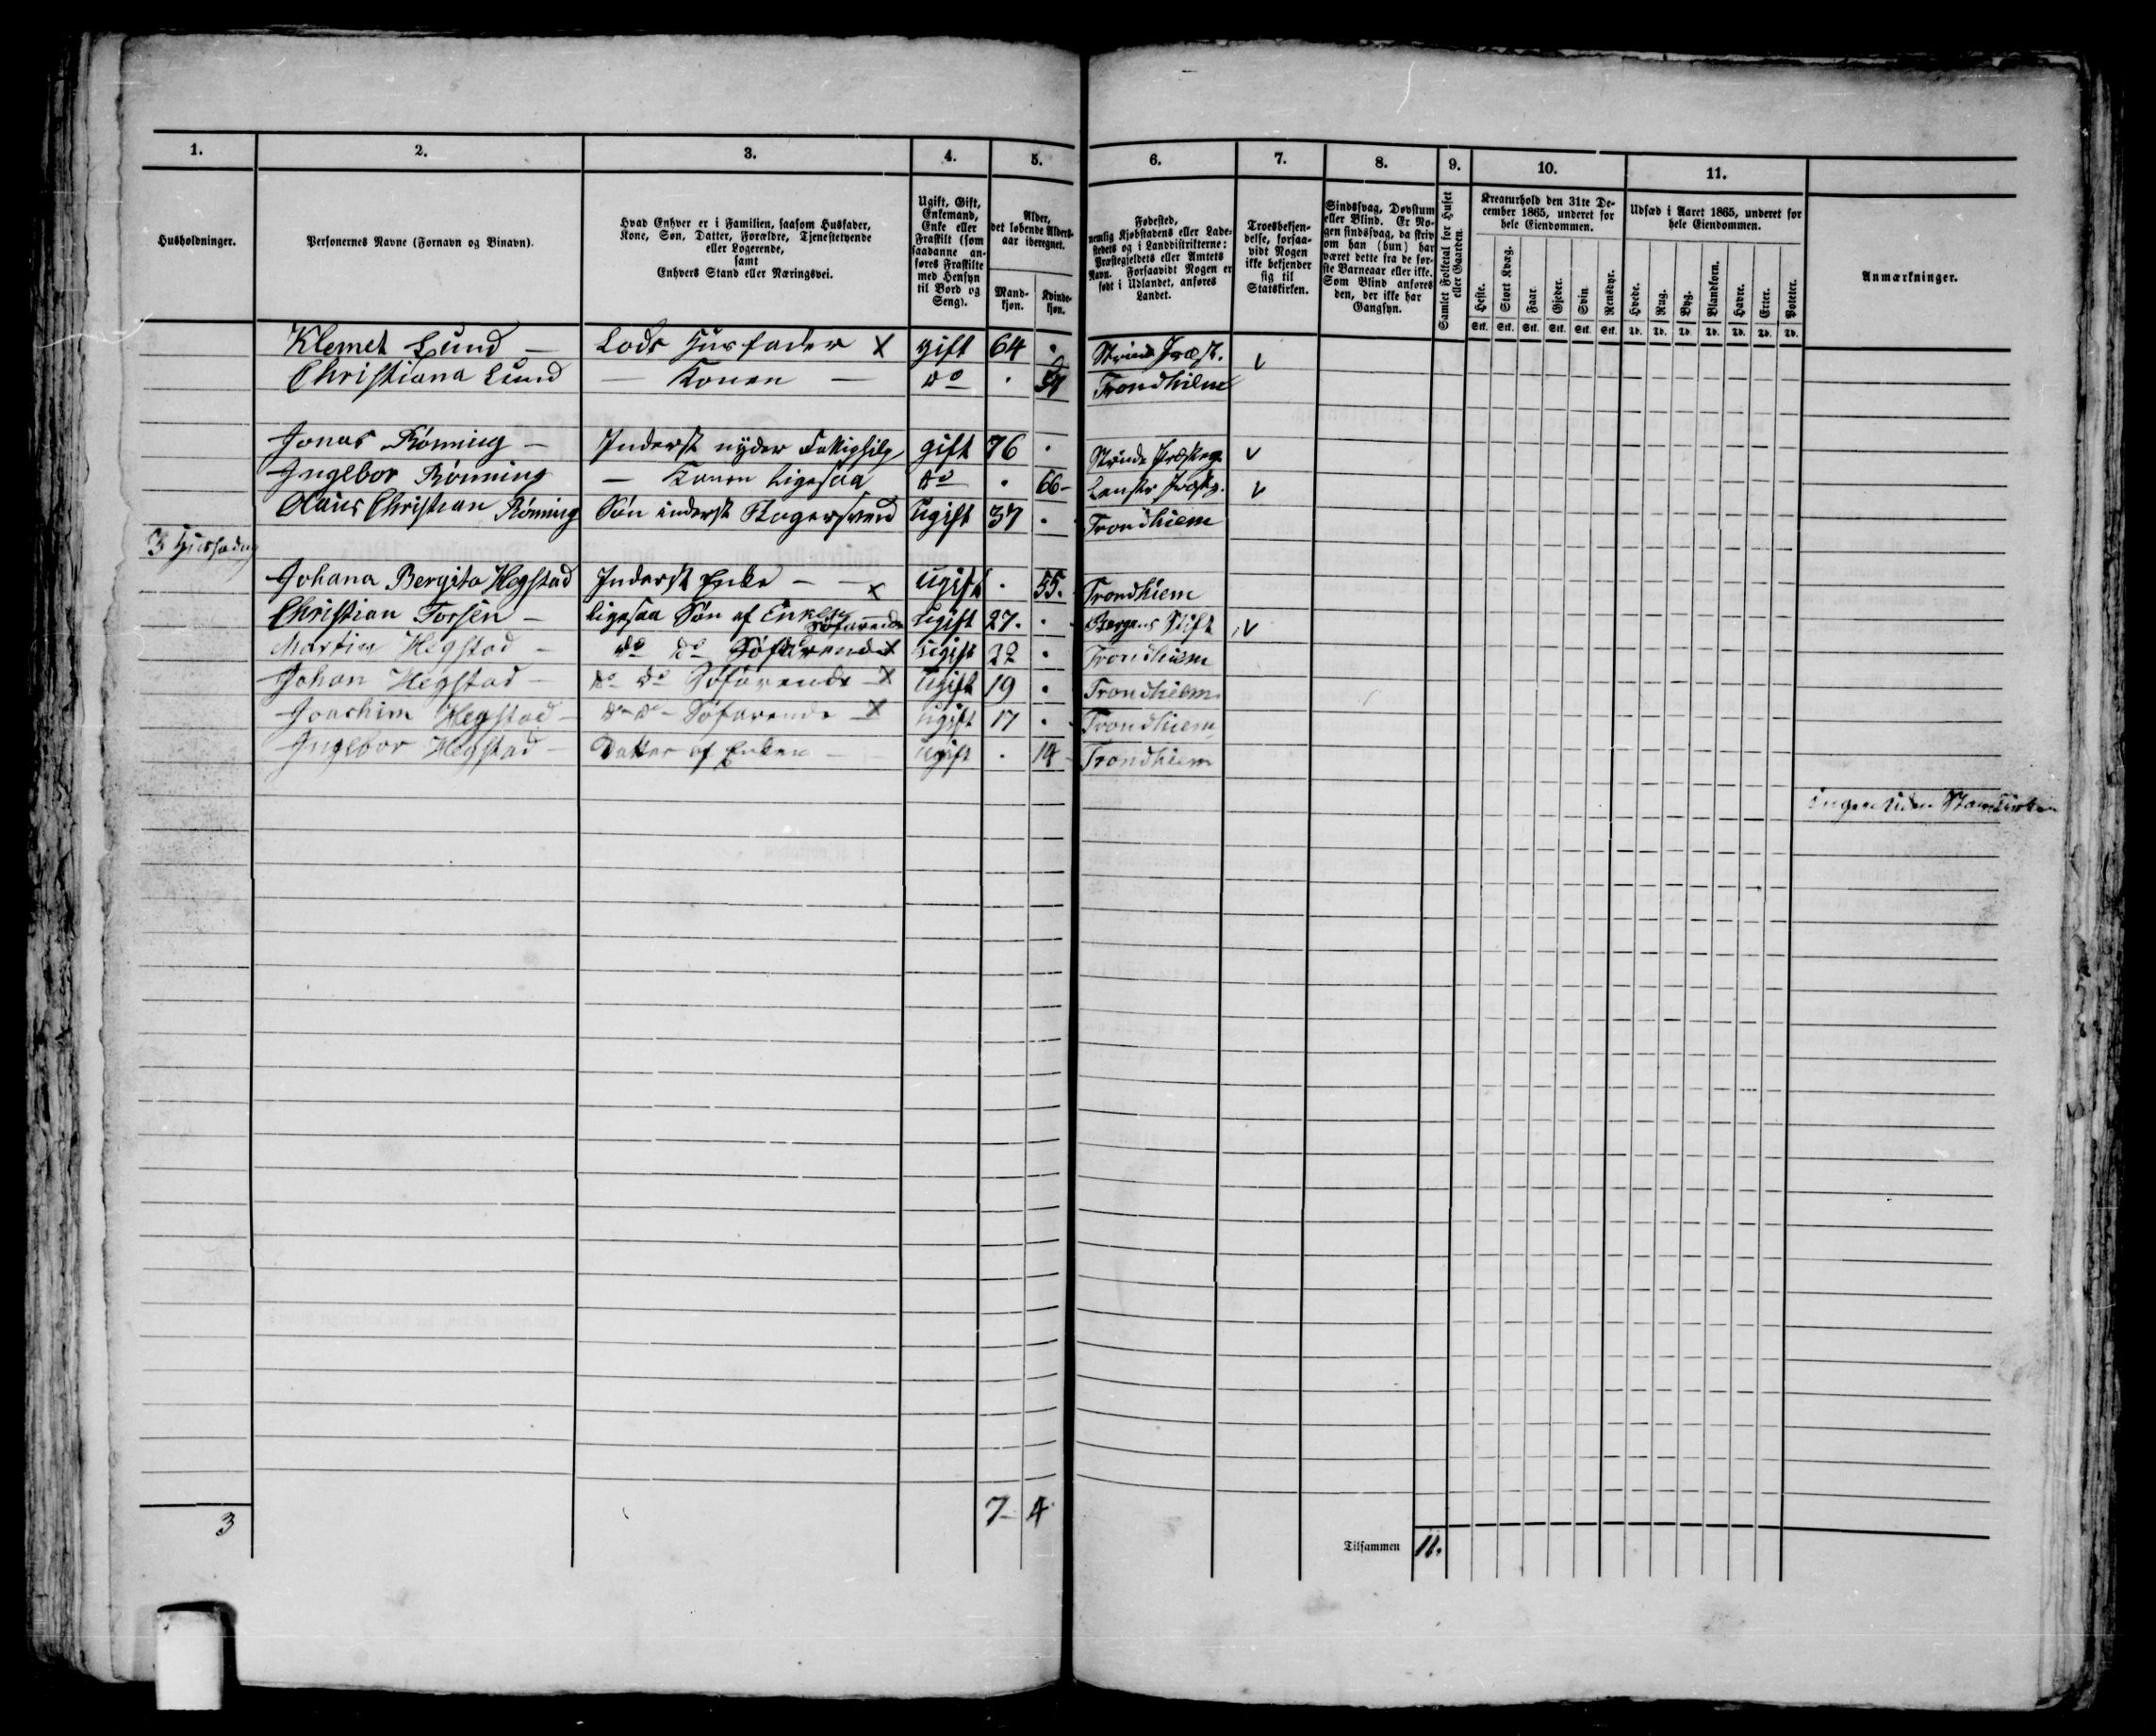 1. 2. 3. 4. 5. 6. 7. 8. 9. 10. 11.
Husholdninger.
Personernes Navne (Fornavn og Binavn).
Hvad Enhver er i Familien, saasom Husfader,
Kone, Søn, Datter, Forældre, Tjenestetyende
eller Logerende,
samt
Enhvers Stand eller Næringsvei.
Ugift, Gift,
Enkemand,
Enke eller
Fraskilt (som
saadanne an-
føres Fraskilte
med Hensyn
til Bord og
Seng).
Alder,
det løbende Alders-
aar iberegnet.
Mand-
kjøn.
Kvinde-
kjøn.
Fødested,
nemlig Kjøbstadens eller Lade-
stedets og i Landdistrikterne:
Præstegjeldets eller Amtets
Navn. Forsaavidt Nogen er
født i Udlandet, anføres
Landet.
Troesbekjen-
delse, forsaa-
vidt Nogen
ikke bekjender
sig til
Statskirken.
Sindssvag, Døvstum
eller Blind. Er No-
gen sindssvag, da skriv
om han (hun) har
været dette fra de før-
ste Barneaar eller ikke.
Som Blind anføres
den, der ikke har
Gangsyn.
Samlet Folketal for Huset
eller Gaarden.
Kreaturhold den 31te De-
cember 1865, underet for
hele Eiendommen.
Heste. Stort Kvæg. Faar. Gjeder. Svin. Rensdyr.
Stk. Stk. Stk. Stk. Stk. Stk.
Udsæd i Aaret 1865, underet for
hele Eiendommen.
Hvede. Rug. Byg. Blandkorn. Havre. Erter. Poteter.
Td. Td. Td. Td. Td. Td. Td.
Anmærkninger.
Klemet Lund — Lods Husfader x gift 64 . Strinde Præst. v
Christiana Lund — Konen — do . Trondhiem
Jonas Rönning — Inderst nyder Fattighilp gift 76 . Strinde Præsteg. v
Ingebor Rönning — Konen ligesaa do . 66 — Præsteg. v
Olaus Christian Rönning Søn inderst Ugift 37 . Trondhiem
3
Johana Bergita Hegstad Inderst Enke — x Ugift . 55. Trondhiem
Christian Forsen — ligesaa Søn af Enken Søfarende Ugift 27. . Bergens Stift v
Martin Hegstad — do do Søfarende x Ugift 22 . Trondhiem
Johan Hegstad — do do Søfarende x Ugift 19 . Trondhiem
Joachim Hegstad — do do Søfarende x Ugift 17 . Trondhiem
Ingebor Hegstad — Datter af Enken — Ugift . 14 Trondhiem
Ingen uden Statskirken
3 7 4
Tilsammen 11.